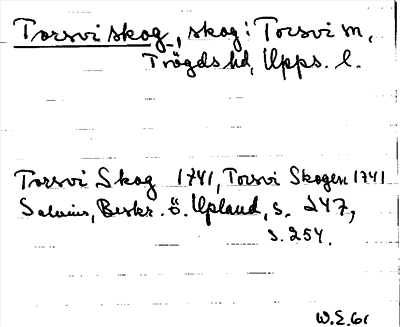 Torsvi skog, skog: Torsvi sn,
Trögds hd, Upps. l.
Torsvi Skog 1741, Torsvi Skogen 1741
Salvius, Beskr. ö. Upland, s. 247,
s. 254.
W.E. 61